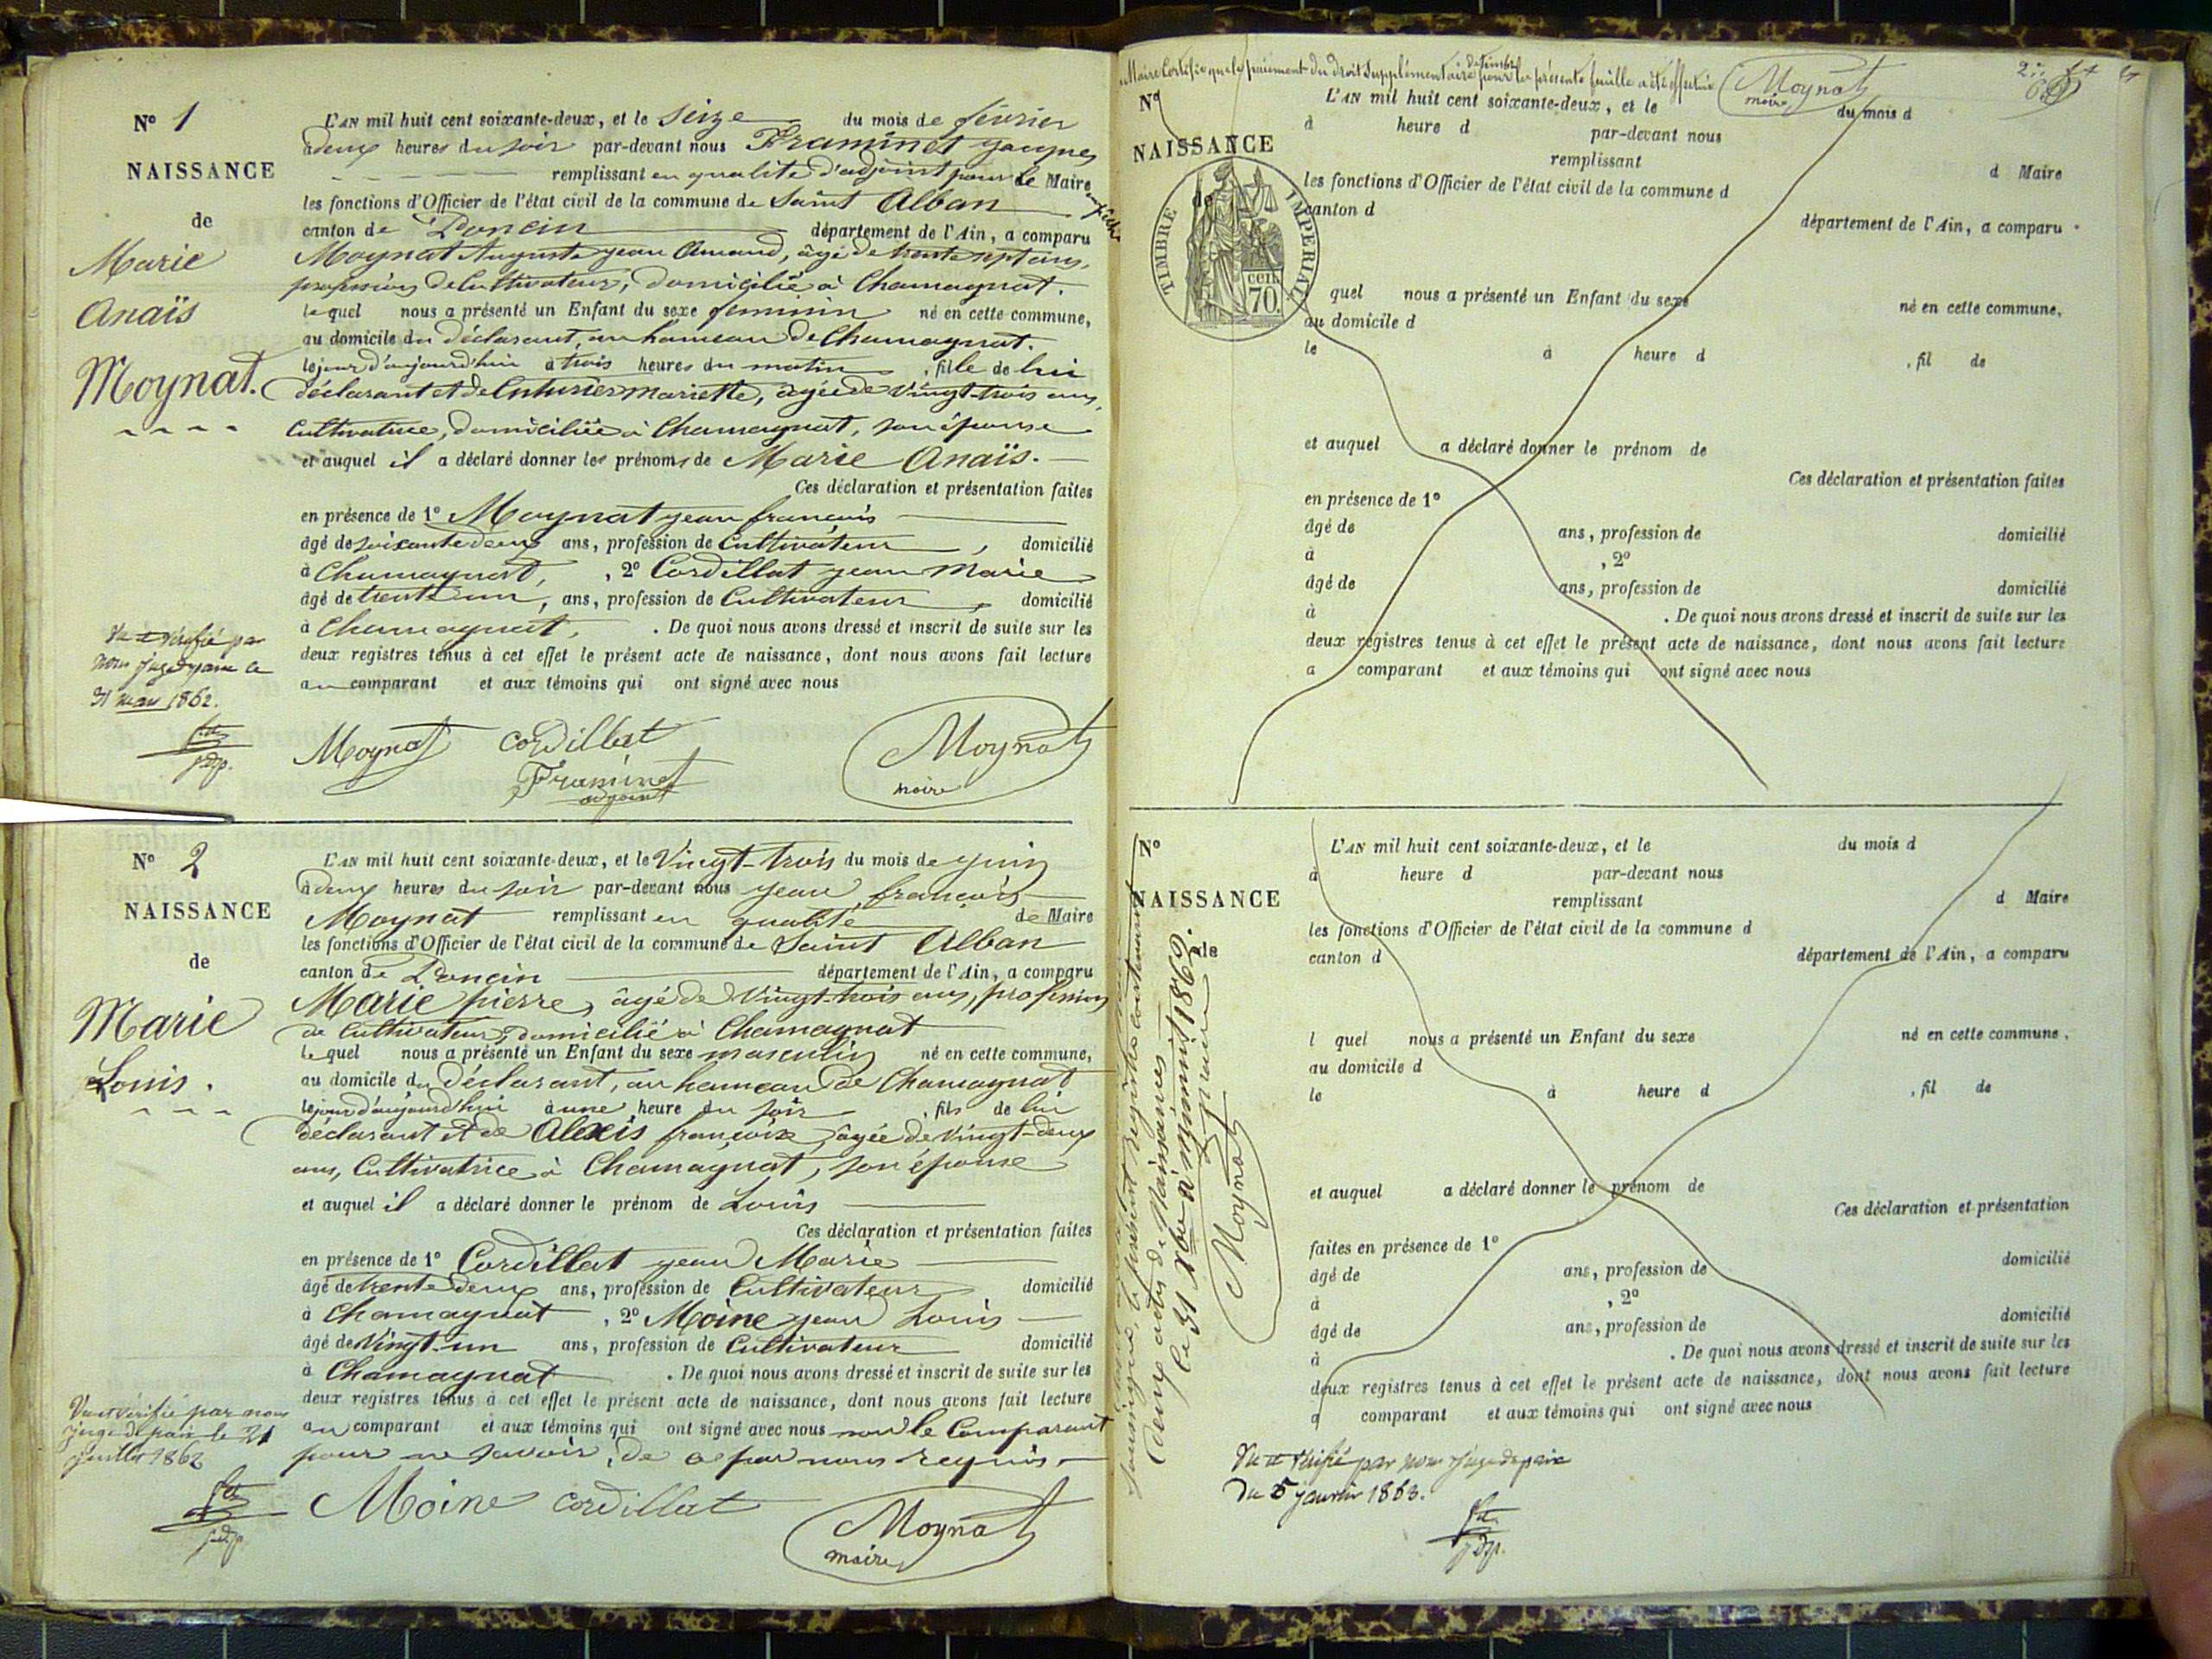 N° 1
NAISSANCE
de
Marie
Anaïs
Moynat.
L'AN mil huit cent soixante-deux, et le Seize du mois de février
à deux heures du soir par-devant nous Framinet Jacques
remplissant en qualité d'adjoint pour le Maire empêché
les fonctions d'Officier de l'état civil de la commune de Saint Alban
canton de Poncin département de l'Ain, a comparu
Moynat Auguste Jean Amand, âgé de trente sept ans,
profession de Cultivateur, domicilié à Chamagnat.
lequel nous a présenté un Enfant du sexe féminin né en cette commune,
au domicile du déclarant, au hameau de Chamagnat.
le jour d'aujourd'hui à trois heures du matin, fille de lui
déclarant et de mariette, âgée de Vingt-trois ans,
Cultivatrice, domiciliée à Chamagnat, son épouse
et auquel il a déclaré donner les prénoms de Marie Anaïs.
Ces déclaration et présentation faites
en présence de 1° Moynat Jean françois
âgé de soixante deux ans, profession de Cultivateur, domicilié
à Chamagnat, , 2° Cordillat Jean Marie
âgé de trente un, ans, profession de Cultivateur, domicilié
à Chamagnat, . De quoi nous avons dressé et inscrit de suite sur les
deux registres tenus à cet effet le présent acte de naissance, dont nous avons fait lecture
au comparant et aux témoins qui ont signé avec nous
Vu et vérifié par
nous Juge de paix le
31 mars 1862.
j.d.p.
Moynat Cordillat Moynat
Framinet maire
adjoint
N° 2
NAISSANCE
de
Marie
Louis.
L'AN mil huit cent soixante-deux, et le Vingt-trois du mois de Juin
à deux heures du soir par-devant nous Jean françois
Moynat remplissant en qualité de Maire
les fonctions d'Officier de l'état civil de la commune de Saint Alban
canton de Poncin département de l'Ain, a comparu
Marie pierre, âgé de Vingt-trois ans, profession
de Cultivateur, domicilié à Chamagnat
lequel nous a présenté un Enfant du sexe masculin né en cette commune,
au domicile du déclarant, au hameau de Chamagnat
le jour d'aujourd'hui à une heure du soir, fils de lui
déclarant et de Alexis françoise, âgée de Vingt-deux
ans, Cultivatrice à Chamagnat, son épouse
et auquel il a déclaré donner le prénom de Louis
Ces déclaration et présentation faites
en présence de 1° Cordillat Jean Marie
âgé de trente deux ans, profession de Cultivateur domicilié
à Chamagnat , 2° Moine Jean Louis
âgé de Vingt-un ans, profession de Cultivateur domicilié
à Chamagnat . De quoi nous avons dressé et inscrit de suite sur les
deux registres tenus à cet effet le présent acte de naissance, dont nous avons fait lecture
au comparant et aux témoins qui ont signé avec nous non le Comparant
pour ne savoir, de ce par nous requis.
Vu et vérifié par nous
Juge de paix le 21
juillet 1862
j.d.p.
Moine Cordillat Moynat
maire
Maire Certifie que le paiement du droit Supplémentaire de timbre pour la présente feuille a été effectué Moynat
maire
N°
NAISSANCE
de
TIMBRE IMPERIAL
cen.
70.
L'AN mil huit cent soixante-deux, et le du mois d
à heure d par-devant nous
remplissant d Maire
les fonctions d'Officier de l'état civil de la commune d
canton d département de l'Ain, a comparu
quel nous a présenté un Enfant du sexe né en cette commune,
au domicile d
le à heure d , fil de
et auquel a déclaré donner le prénom de
Ces déclaration et présentation faites
en présence de 1°
âgé de ans, profession de domicilié
à , 2°
âgé de ans, profession de domicilié
à . De quoi nous avons dressé et inscrit de suite sur les
deux registres tenus à cet effet le présent acte de naissance, dont nous avons fait lecture
a comparant et aux témoins qui ont signé avec nous
N°
NAISSANCE
de
L'AN mil huit cent soixante-deux, et le du mois d
à heure d par-devant nous
remplissant d Maire
les fonctions d'Officier de l'état civil de la commune d
canton d département de l'Ain, a comparu
l quel nous a présenté un Enfant du sexe né en cette commune,
au domicile d
le à heure d , fil de
et auquel a déclaré donner le prénom de
Ces déclaration et présentation
faites en présence de 1°
âgé de ans, profession de domicilié
à , 2°
âgé de ans, profession de domicilié
à . De quoi nous avons dressé et inscrit de suite sur les
deux registres tenus à cet effet le présent acte de naissance, dont nous avons fait lecture
a comparant et aux témoins qui ont signé avec nous
le présent registre contenant
Deux actes de Naissances
le 31 Xbre à minuit 1862.
Moynat
Vu et vérifié par nous Juge de paix
Du 5 janvier 1863.
j.d.p.